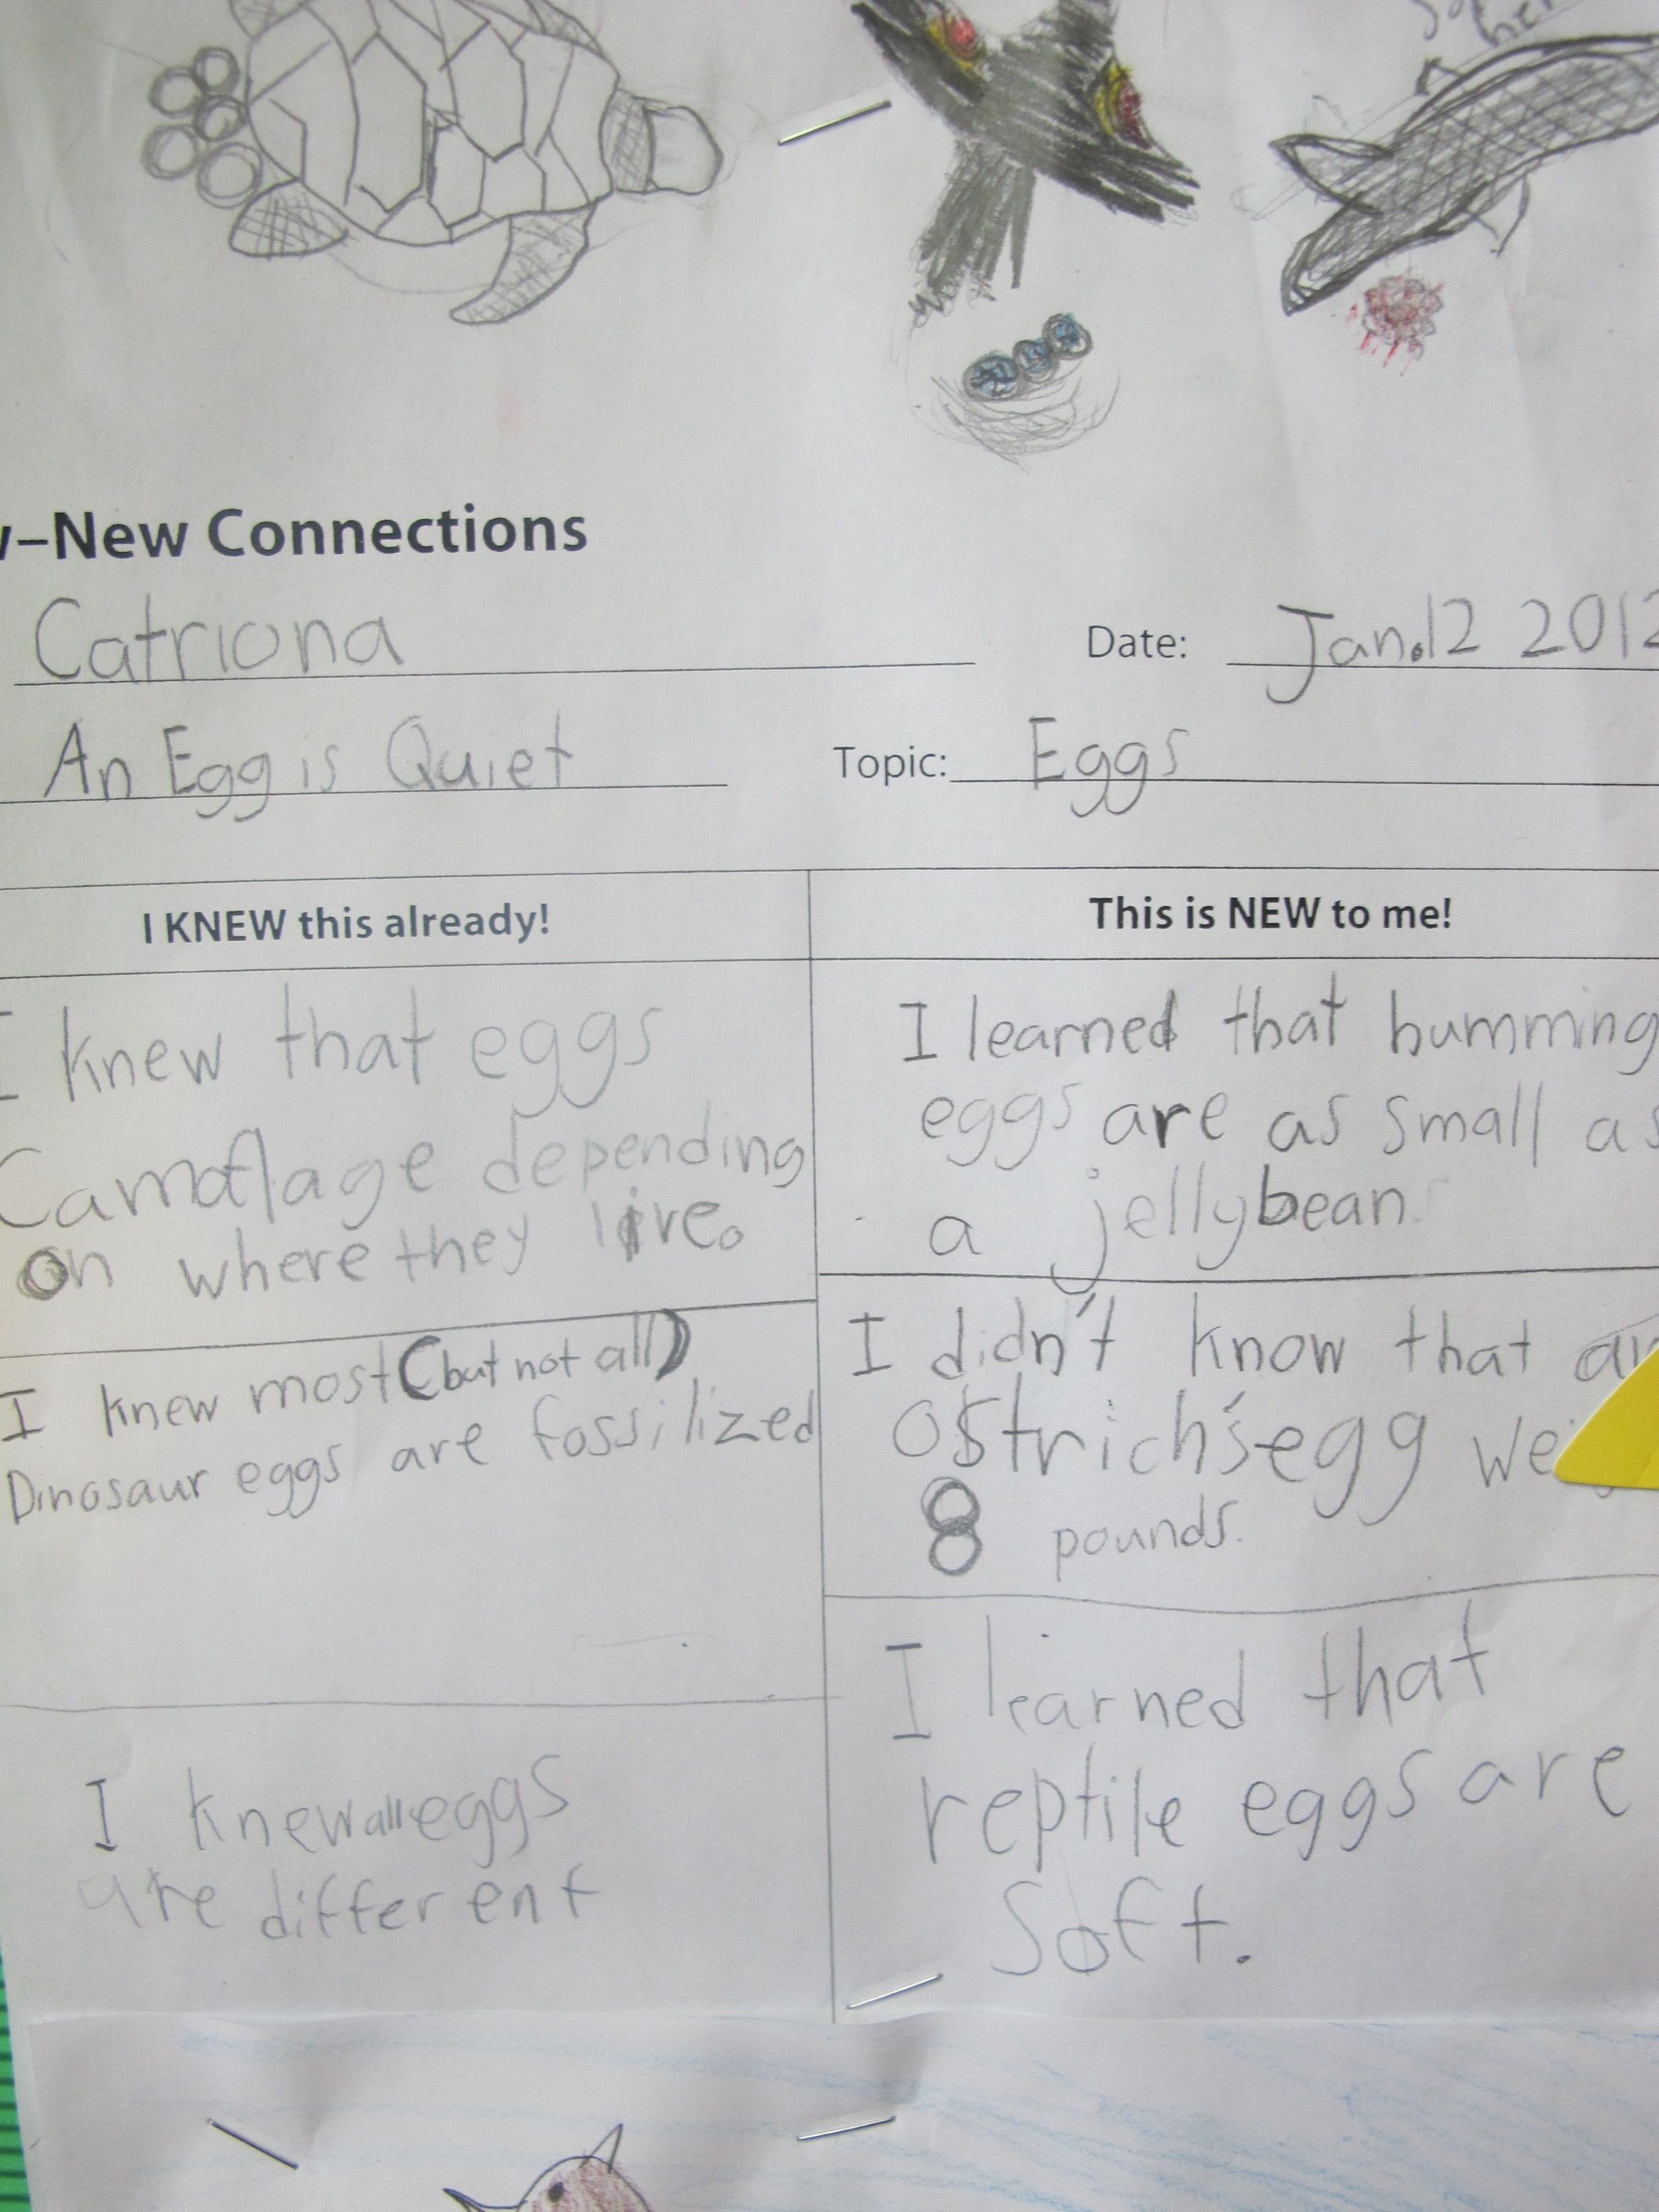 her
–New Connections
Catriona
Date: Jan.12 2012
An Egg is Quiet
Topic: Eggs
I KNEW this already!
This is NEW to me!
I knew that eggs
Camoflage depending
on where they live.
I knew most (but not all)
Dinosaur eggs are fossilized
I knew all eggs
are different
I learned that humming
eggs are as small as
a jellybean
I didn't know that an
ostrich's egg
8 pounds.
I learned that
reptile eggs are
Soft.